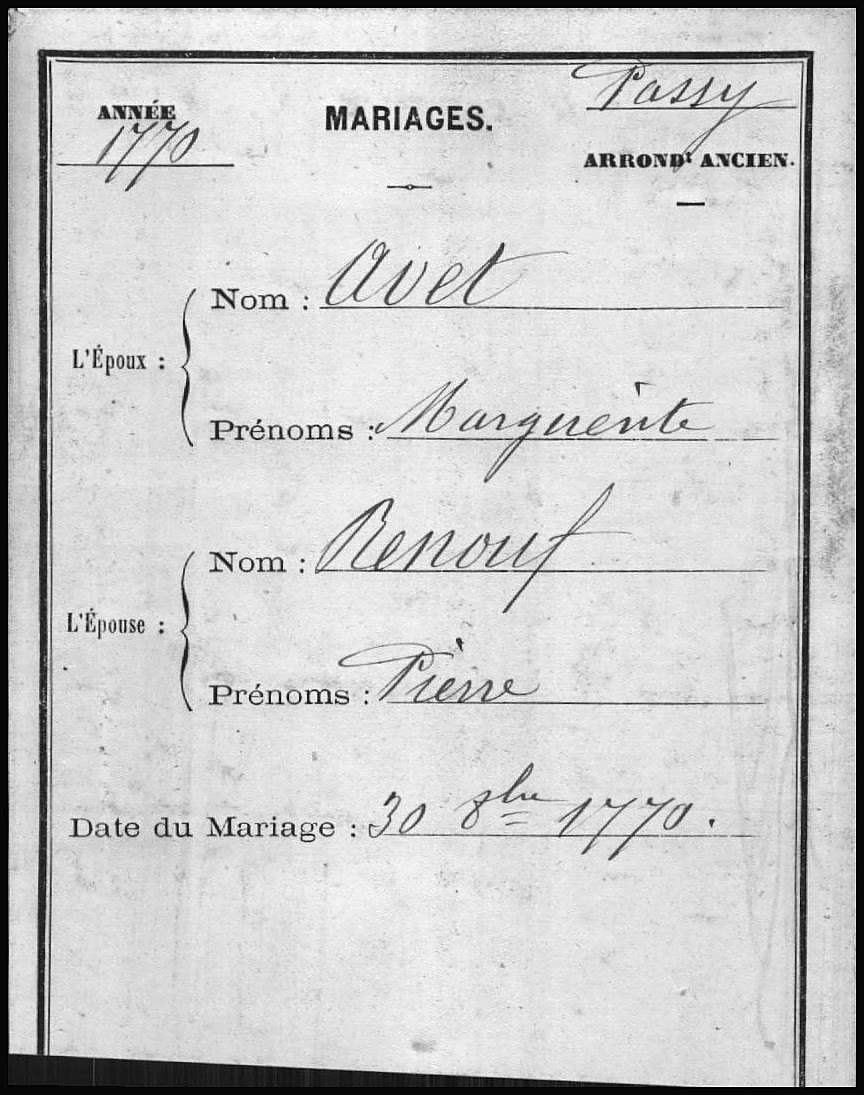 ANNÉE
1770
MARIAGES.
Passy
ARRONDt ANCIEN.
L'Époux :
Nom : Avet
Prénoms : Marguerite
L'Épouse :
Nom : Renouf
Prénoms : Pierre
Date du Mariage : 30 8bre 1770.